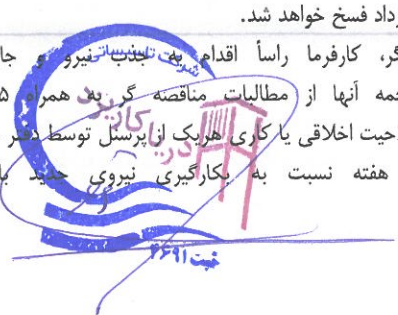 رداد فسخ خواهد شد.
گر، کارفرما راساً اقدام به جذب نیرو و جا
مه آنها از مطالبات مناقصه گر به همراه ۵
حیت اخلاقی یا کاری هریک از پرسنل توسط دفتر
هفته نسبت به بکارگیری نیروی جدید با
شرکت تاسیساتی
دریا کاران
ثبت ۲۶۹۱